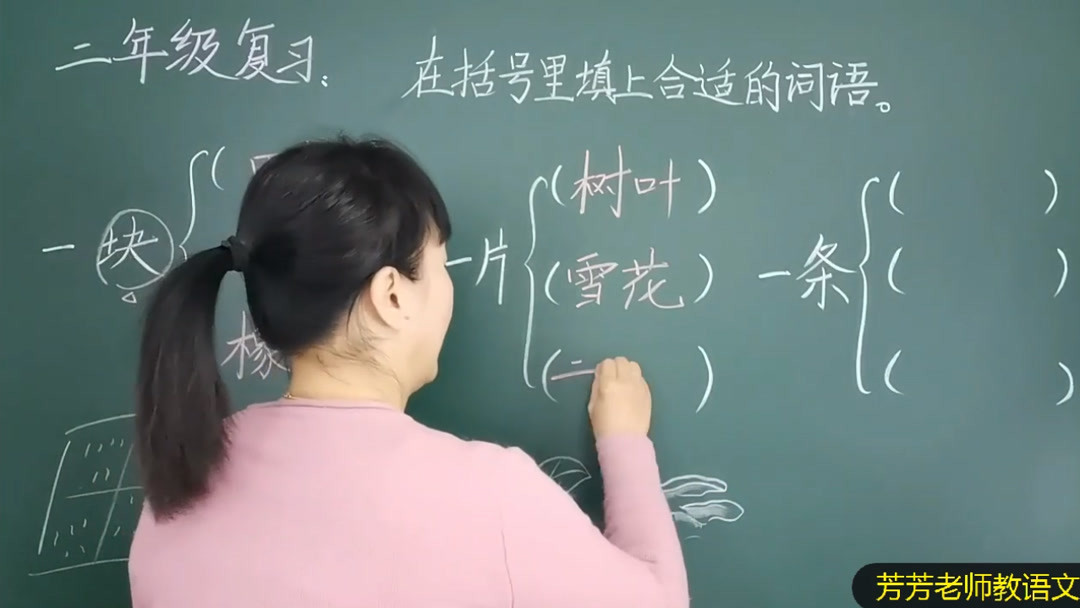 二年级复习： 在括号里填上合适的词语。
一块 { (
橡
一片 { (树叶)
(雪花)
(二 )
一条 { ( )
( )
( )
芳芳老师教语文